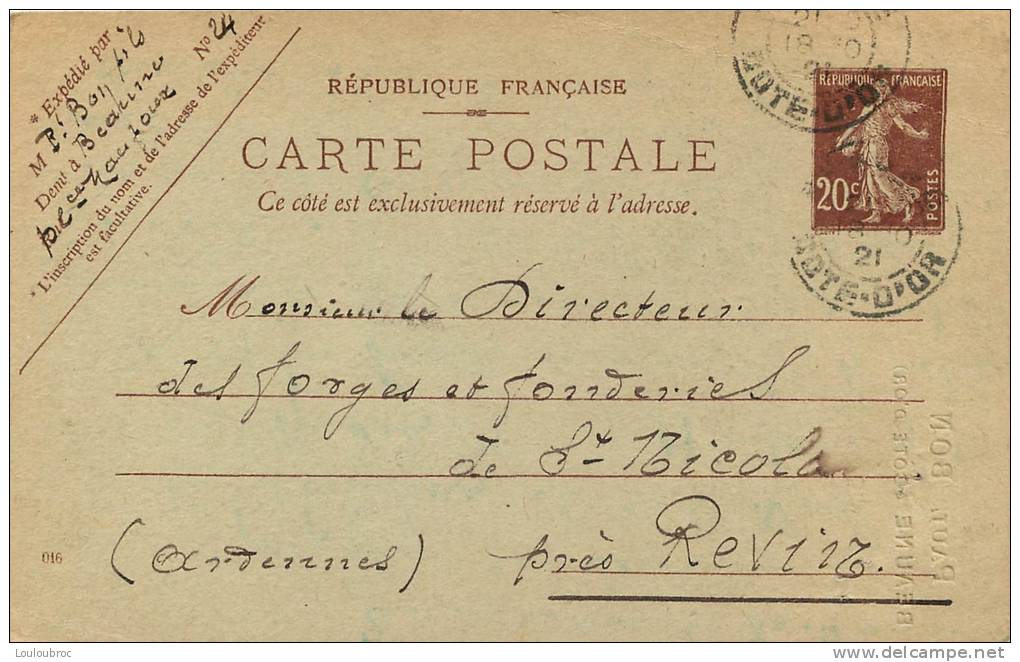 * Expédié par N° 24
M P. Bon fils
Demt à Beaune
ple
* L'inscription du nom et de l'adresse de l'expéditeur
est facultative.
RÉPUBLIQUE FRANÇAISE
CARTE POSTALE
Ce côté est exclusivement réservé à l'adresse.
RÉPUBLIQUE FRANÇAISE
20c POSTES
21
18
21
COTE-D'OR
18
21
COTE-D'OR
Monsieur le Directeur
des forges et fonderies
de St Nicolas
(Ardennes) près Revin.
016
PAUL BON
BEAUNE (COTE D'OR)
Louloubroc
delcampe.net